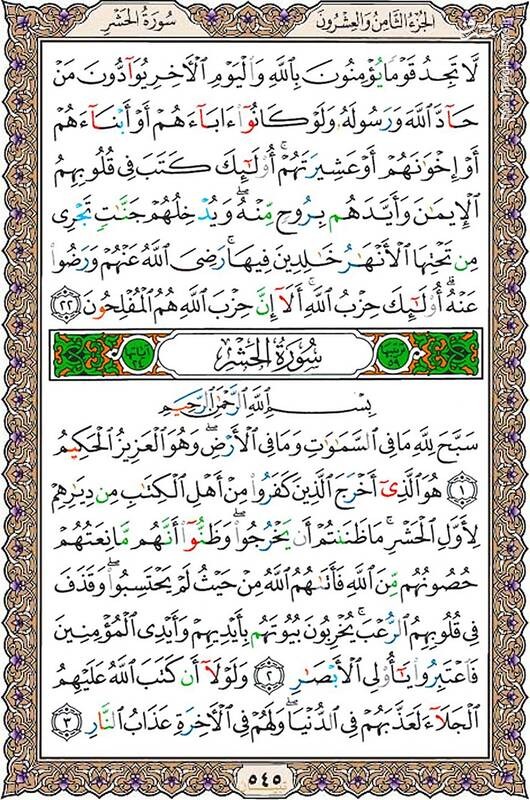 الجُزءُ الثَّامِنُ وَالعِشرُونَ
سُورَةُ الحَشرِ
لَّا تَجِدُ قَوْمًا يُؤْمِنُونَ بِٱللَّهِ وَٱلْيَوْمِ ٱلْأَخِرِ يُوَآدُّونَ مَنْ
حَآدَّ ٱللَّهَ وَرَسُولَهُۥ وَلَوْ كَانُوٓا۟ ءَابَآءَهُمْ أَوْ أَبْنَآءَهُمْ
أَوْ إِخْوَٰنَهُمْ أَوْ عَشِيرَتَهُمْ ۚ أُو۟لَٰٓئِكَ كَتَبَ فِى قُلُوبِهِمُ
ٱلْإِيمَٰنَ وَأَيَّدَهُم بِرُوحٍ مِّنْهُ ۖ وَيُدْخِلُهُمْ جَنَّٰتٍ تَجْرِى
مِن تَحْتِهَا ٱلْأَنْهَٰرُ خَٰلِدِينَ فِيهَا ۚ رَضِىَ ٱللَّهُ عَنْهُمْ وَرَضُوا۟
عَنْهُ ۚ أُو۟لَٰٓئِكَ حِزْبُ ٱللَّهِ ۚ أَلَآ إِنَّ حِزْبَ ٱللَّهِ هُمُ ٱلْمُفْلِحُونَ ٢٢
ترتيبها ٥٩ سُورَةُ الحَشرِ آياتها ٢٤
بِسْمِ ٱللَّهِ ٱلرَّحْمَٰنِ ٱلرَّحِيمِ
سَبَّحَ لِلَّهِ مَا فِى ٱلسَّمَٰوَٰتِ وَمَا فِى ٱلْأَرْضِ ۖ وَهُوَ ٱلْعَزِيزُ ٱلْحَكِيمُ
١ هُوَ ٱلَّذِىٓ أَخْرَجَ ٱلَّذِينَ كَفَرُوا۟ مِنْ أَهْلِ ٱلْكِتَٰبِ مِن دِيَٰرِهِمْ
لِأَوَّلِ ٱلْحَشْرِ ۚ مَا ظَنَنتُمْ أَن يَخْرُجُوا۟ ۖ وَظَنُّوٓا۟ أَنَّهُم مَّانِعَتُهُمْ
حُصُونُهُم مِّنَ ٱللَّهِ فَأَتَىٰهُمُ ٱللَّهُ مِنْ حَيْثُ لَمْ يَحْتَسِبُوا۟ ۖ وَقَذَفَ
فِى قُلُوبِهِمُ ٱلرُّعْبَ ۚ يُخْرِبُونَ بُيُوتَهُم بِأَيْدِيهِمْ وَأَيْدِى ٱلْمُؤْمِنِينَ
فَٱعْتَبِرُوا۟ يَٰٓأُو۟لِى ٱلْأَبْصَٰرِ ٢ وَلَوْلَآ أَن كَتَبَ ٱللَّهُ عَلَيْهِمُ
ٱلْجَلَآءَ لَعَذَّبَهُمْ فِى ٱلدُّنْيَا ۖ وَلَهُمْ فِى ٱلْأَخِرَةِ عَذَابُ ٱلنَّارِ ٣
٥٤٥